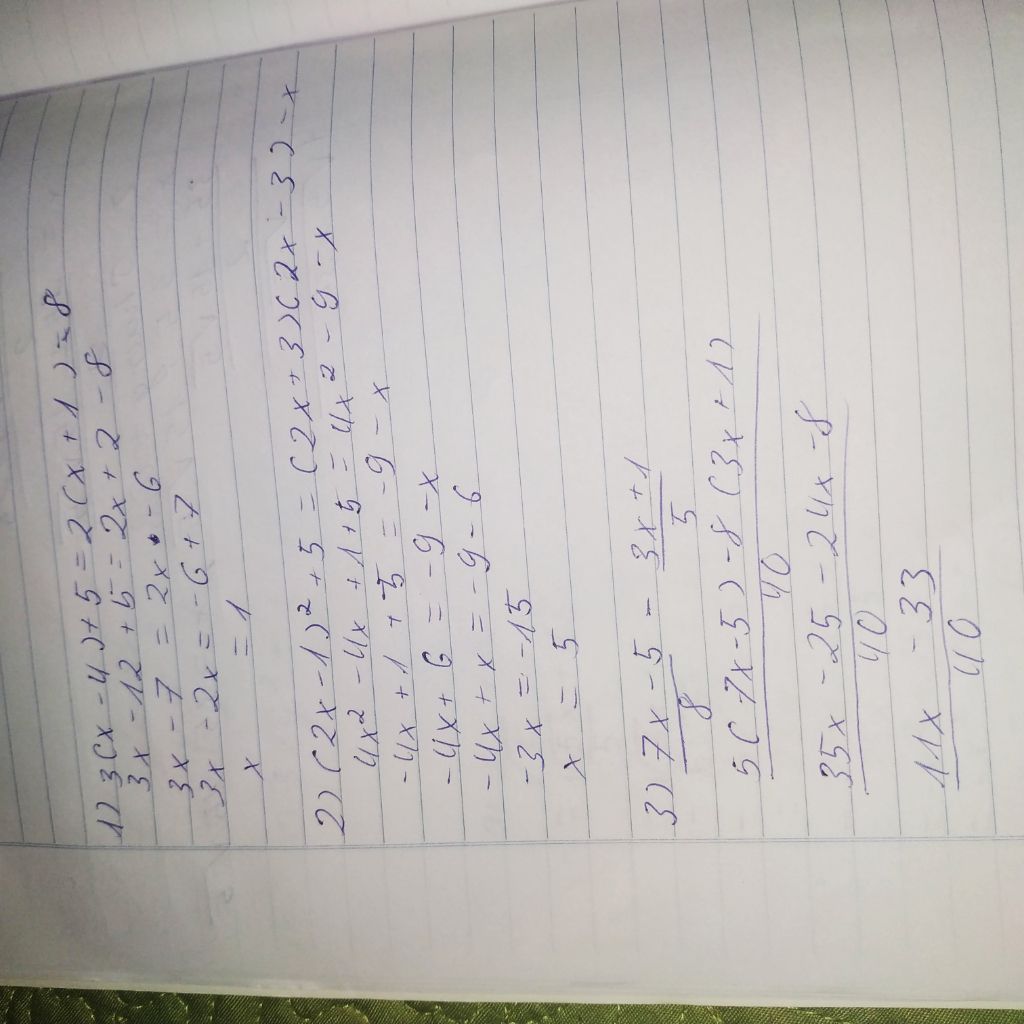 1) 3(x-4)+5=2(x+1)-8
3x-12+5=2x+2-8
3x-7=2x-6
3x-2x=-6+7
x=1
2) (2x-1)²+5=(2x+3)(2x-3)-x
4x²-4x+1+5=4x²-9-x
-4x+1+5=-9-x
-4x+6=-9-x
-4x+x=-9-6
-3x=-15
x=5
3) (7x-5)/8 - (3x+1)/5
(5(7x-5)-8(3x+1))/40
(35x-25-24x-8)/40
(11x-33)/40